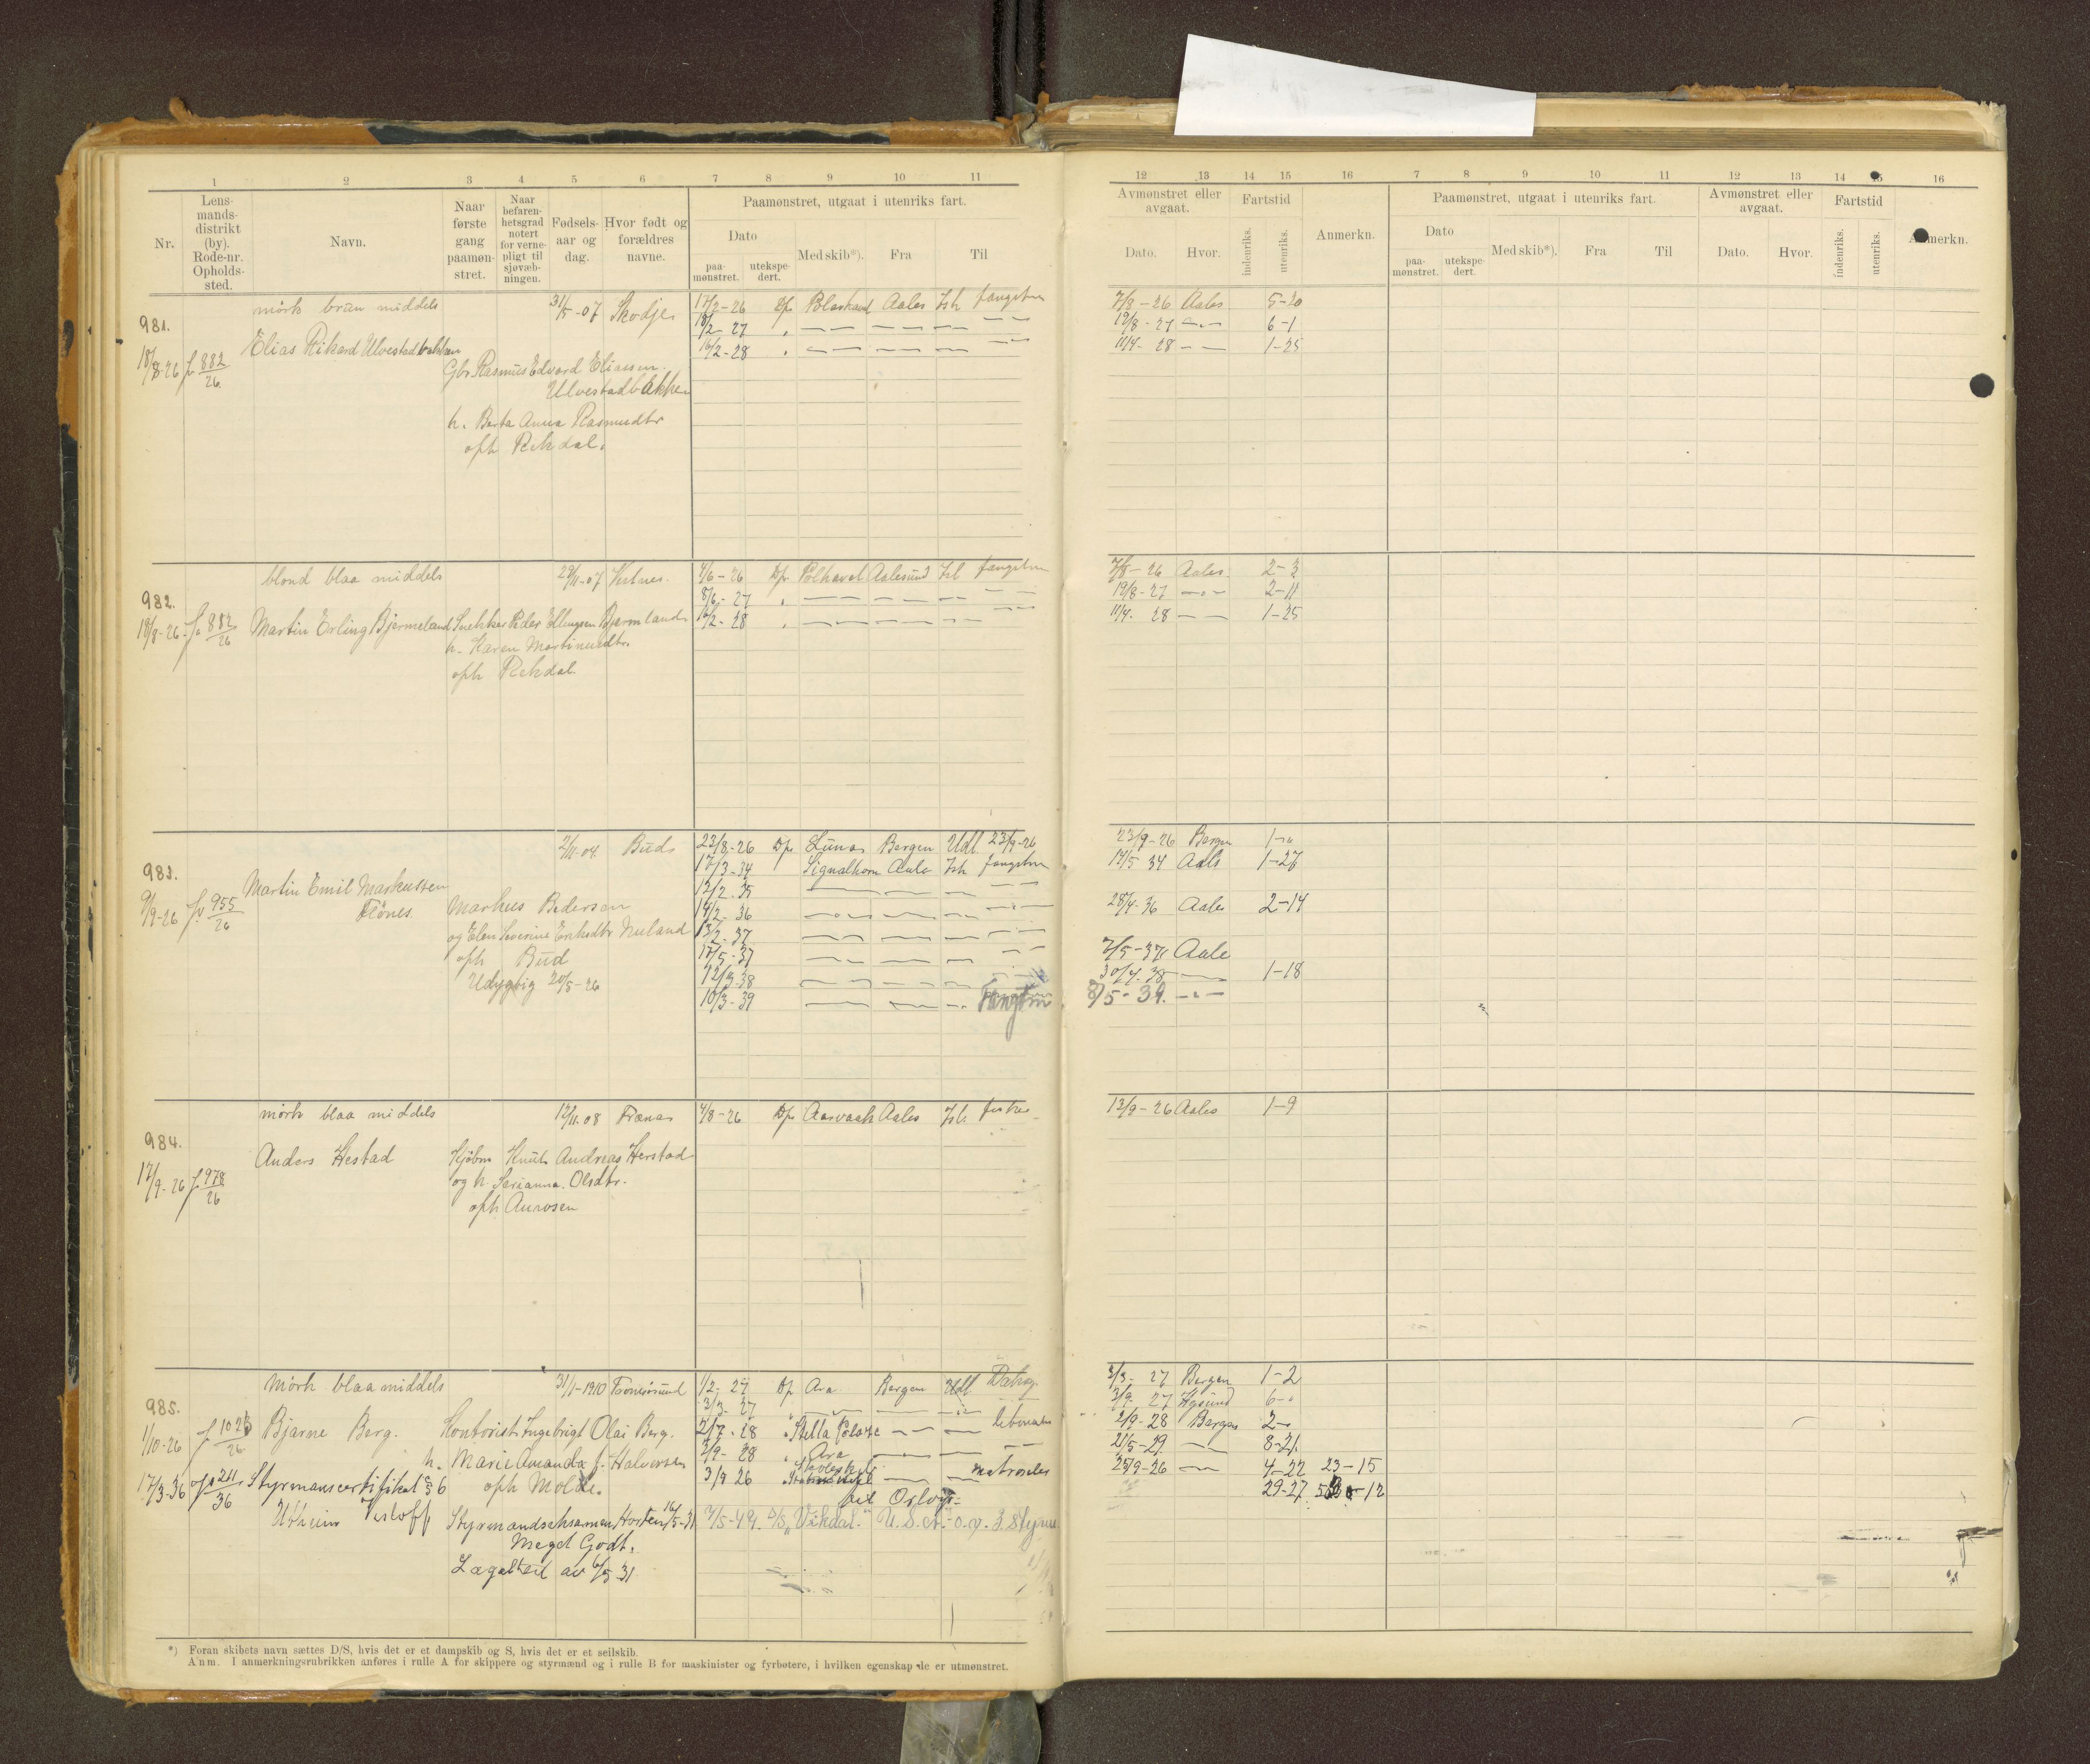 1 2 3 4 5 6 7 8 9 10 11
Nr. Lens-mands-distrikt (by). Rode-nr. Opholds-sted. Navn. Naar første gang paamøn-stret. Naar befaren-hetsgrad notert for verne-pligt til sjøvæb-ningen. Fødsels-aar og dag. Hvor født og forældres navne. Paamønstret, utgaat i utenriks fart.
Dato paa-mønstret. utekspe-dert. Med skib*). Fra Til
12 13 14 15 16 7 8 9 10 11 12 13 14 15 16
Avmønstret eller avgaat. Fartstid Anmerkn. Paamønstret, utgaat i utenriks fart. Avmønstret eller avgaat. Fartstid Anmerkn.
Dato. Hvor. indenriks. utenriks. Dato paa-mønstret. utekspe-dert. Med skib*). Fra Til Dato. Hvor. indenriks. utenriks.
mörk brun middels 31/5-07 Skodje 17/2-26 Dp Aales Ish fangstm 7/8-26 Aales 5-20
981. 18/2-27 " — — — — — 19/8-27 — 6-1
Elias Rikard Ulvestadbakken 16/2-28 " — — — — — 11/4-28 — 1-25
18/8-26 f 882/26 Gbr Rasmus Edvard Eliassen
Ulvestadbakken
h. Berta Anna Rasmusdtr
oph Rekdal.
blond blaa middels 29/11-07 Vestnes. 4/6-26 Dp Polhavet Aalesund Ish fangstm 7/8-26 Aales. 2-3
982. 8/6-27 " — — — — — 19/8-27 — 2-11
18/8-26 f 882/26 Martin Erling Bjermeland Snekker Peder Ellingsen Bjermeland 16/2-28 " — — — — — 11/4-28 — 1-25
h. Karen Martinusdtr.
oph Rekdal.
2/11-04 Bud 23/8-26 Dp Luna Bergen Udl 23/9-26 23/9-26 Bergen 1-"
983. 17/3-34 Signalhorn Aales Ish fangstm 14/5 34 Aales 1-27
Martin Emil Markussen 12/2-35 — — — —
9/9-26 f 955/26 Tönes. Markus Pedersen 14/2-36 — — — — 28/4-36 Aales 2-14
og Elen Severine Eriksdtr Nuland 13/2-37 — — — —
oph Bud 17/5-37 — — — — 2/5-37 Aale
Udygtig 20/5-26 12/3-38 — — — — 30/4-38 — 1-18
10/3-39 — — — Fangstm 8/5-39. —
mörk blaa middels 12/11-08 Frænas 4/8-26 Dp Aarvaak Aales Ish fisker 13/9-26 Aales 1-9
984.
Anders Hestad Sjöbm Knut Andreas Herstad
17/9-26 f 978/26 og h. Serianna Olsdtr.
oph Aurosen
Mörk blaa middels 31/1-1910 1/2-27 Dp Ara Bergen Udl 3/3-27 Bergen 1-2
985. 3/3-27 " — — — 3/9-27 6-"
1/10-26 f Bjarne Berg. Kontorist Ingebrigt Olai Berg. 2/7-28 " Stella Polare — — 2/9-28 Bergen 2-"
h. Marie Amanda f. Halvorsen 2/9-28 " Ara — — — 21/5-29 — 8-21
17/3-36 f 211/36 Styrmanscertifikat § 6 oph Molde. 3/9 26 — — matroselev 25/9-26 — 4-22 23-15
til Oslo 29-27
Styrmandseksamen, Horten, 16/5-31 7/5-49. D/S "Vikdal." U.S.A. - o.g. 3. Styrm.
Meget Godt.
Lægeattest av 6/5-31
*) Foran skibets navn sættes D/S, hvis det er et dampskib og S, hvis det er et seilskib.
Anm. I anmerkningsrubrikken anføres i rulle A for skippere og styrmænd og i rulle B for maskinister og fyrbøtere, i hvilken egenskap de er utmønstret.